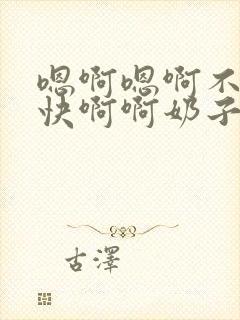 嗯啊嗯啊不
快啊啊奶子
古澤